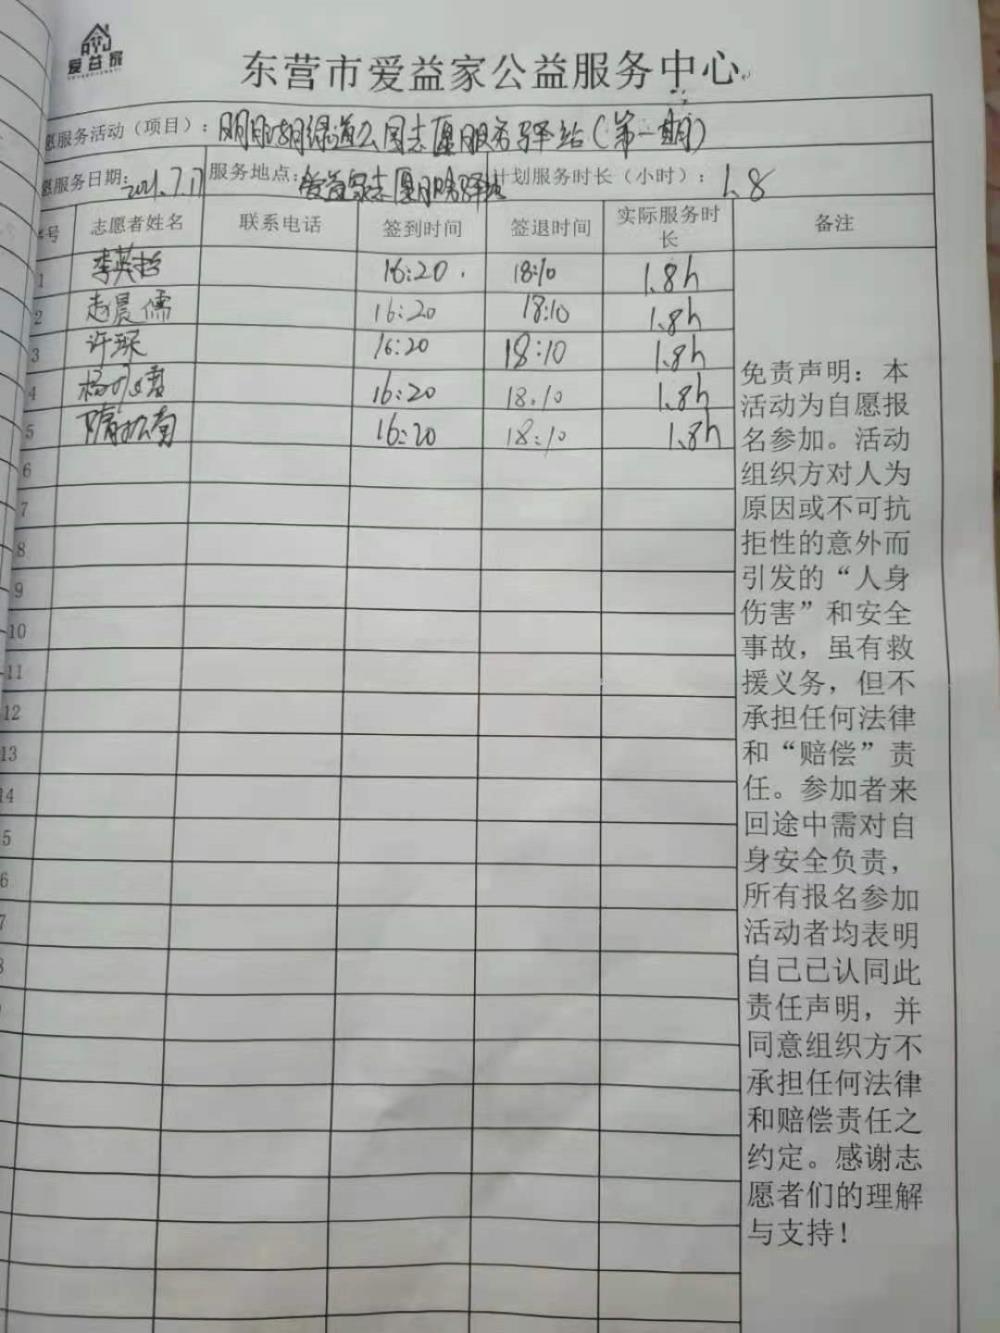 爱益家
东营市爱益家公益服务中心
愿服务活动（项目）：明月湖绿道公园志愿服务驿站（第一期）
愿服务日期：2021.7.17 服务地点：爱益家志愿服务驿站 计划服务时长（小时）：1.8
号 志愿者姓名 联系电话 签到时间 签退时间 实际服务时长 备注
1 李英哲 16:20 18:10 1.8h
2 赵晨儒 16:20 18:10 1.8h
3 许琛 16:20 18:10 1.8h
4 杨 16:20 18:10 1.8h
5 隋 南 16:20 18:10 1.8h
6
7
8
9
10
11
12
13
14
5
6
7
8
免责声明：本
活动为自愿报
名参加。活动
组织方对人为
原因或不可抗
拒性的意外而
引发的“人身
伤害”和安全
事故，虽有救
援义务，但不
承担任何法律
和“赔偿”责
任。参加者来
回途中需对自
身安全负责，
所有报名参加
活动者均表明
自己已认同此
责任声明，并
同意组织方不
承担任何法律
和赔偿责任之
约定。感谢志
愿者们的理解
与支持！